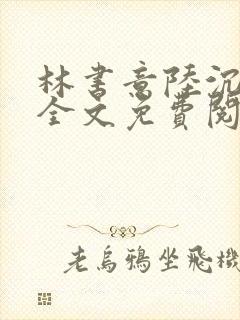 林书意陸沉
全文免費閱
老烏鴉坐飛機